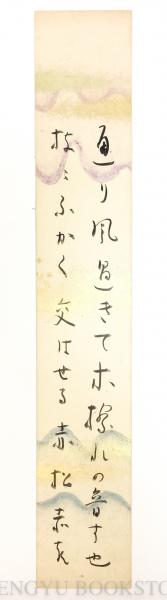 通り風過きて木擦れの音すや
枝ふかく交はせる赤松赤き
ENGYU BOOKSTO